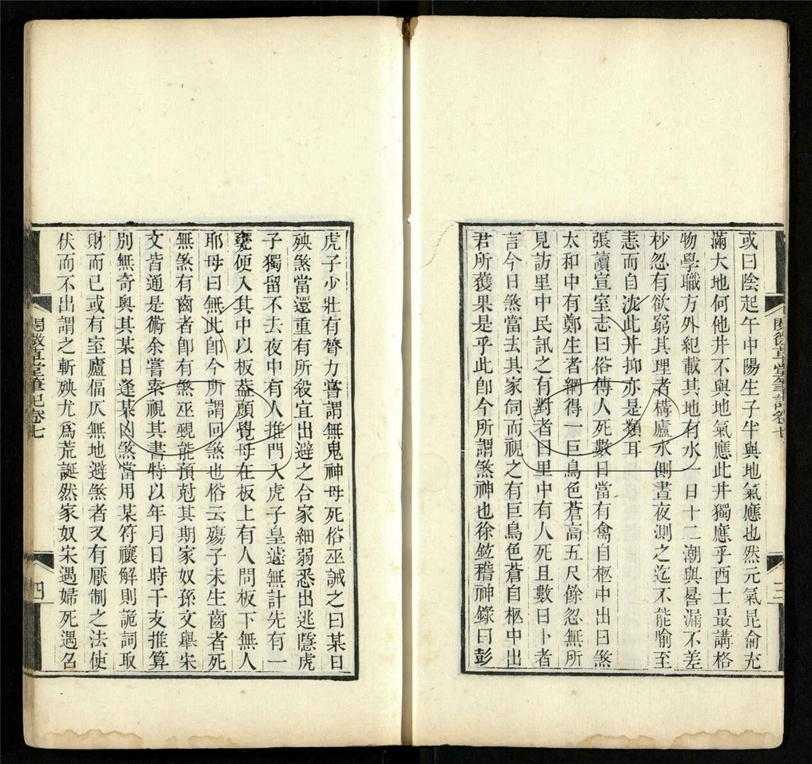 或曰陰起午中陽生子半與地氣應也然元氣昆侖充
滿大地何他井不與地氣應此井獨應乎西士最講格
物學職方外紀載其地有水一日十二潮與晷漏不差
秒忽有欲窮其理者構廬水側晝夜測之迄不能喻至
恚而自沈此井抑亦是類耳
張讀宣室志曰俗傳人死數日當有禽自柩中出曰煞
太和中有鄭生者網得一巨鳥色蒼高五尺餘忽無所
見訪里中民訊之有對者曰里中有人死且數日卜者
言今日煞當去其家伺而視之有巨鳥色蒼自柩中出
君所獲果是乎此卽今所謂煞神也徐鉉稽神錄曰彭
閱微草堂筆記卷七
三
虎子少壯有膂力嘗謂無鬼神母死俗巫誡之曰某日
殃煞當還重有所殺宜出避之合家細弱悉出逃隱虎
子獨留不去夜中有人推門入虎子皇遽無計先有一
甕便入其中以板蓋頭覺母在板上有人問板下無人
耶母曰無此卽今所謂回煞也俗云殤子未生齒者死
無煞有齒者卽有煞巫覡能預尅其期家奴孫文舉宋
文皆通是術余嘗索視其書特以年月日時干支推算
別無奇奧其某日逢某凶煞當用某符禳解則詭詞取
財而已或有室廬偪仄無地避煞者又有厭制之法使
伏而不出謂之斬殃尤爲荒誕然家奴宋遇婦死遇召
閱微草堂筆記卷七
四